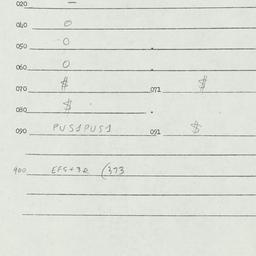 020 —
040 0
050 0
060 0
070 $ 071 $
080 $
090 PUS1PUS1 091 $
900 EFG+3R (373